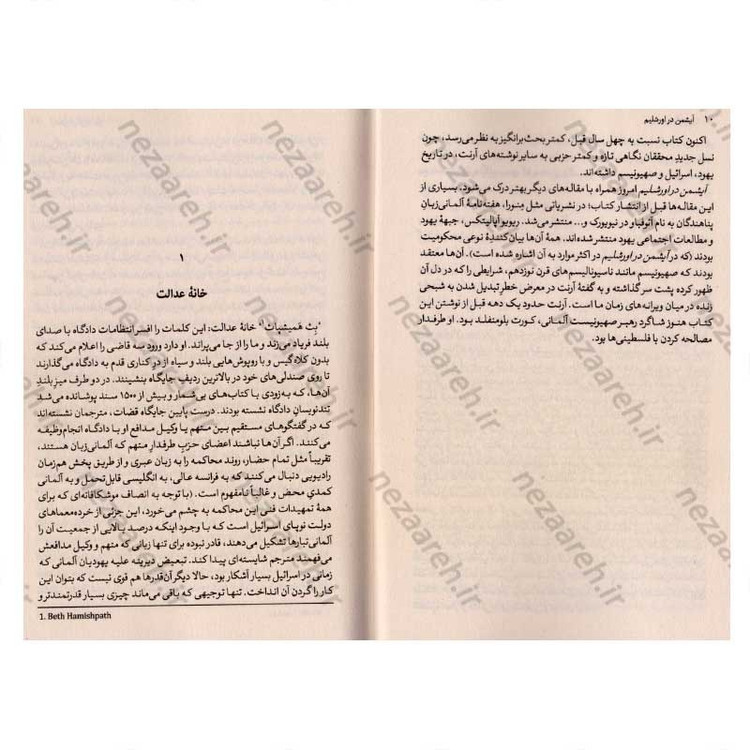 ۱۰ آیشمن در اورشلیم
اکنون کتاب نسبت به چهل سال قبل، کمتر بحث‌برانگیز به نظر می‌رسد، چون
نسل جدیدِ محققان نگاهی تازه و کمتر حزبی به سایر نوشته‌های آرنت، در تاریخ
یهود، اسرائیل و صهیونیسم داشته‌اند.
آیشمن در اورشلیم امروز همراه با مقاله‌های دیگر بهتر درک می‌شود، بسیاری از
این مقاله‌ها قبل از انتشار کتاب؛ در نشریاتی مثل مِنورا، هفته‌نامهٔ آلمانی‌زبانِ
پناهندگان به نام آئوفباو در نیویورک و... منتشر می‌شد. ریویو آپالیتکس، جبههٔ یهود
و مطالعات اجتماعی یهود منتشر شده‌اند. همهٔ آن‌ها بیان‌کنندهٔ نوعی محکومیت
بودند (که در آیشمن در اورشلیم در اکثر موارد به آن اشاره شده است). آن‌ها معتقد
بودند که صهیونیسم مانند ناسیونالیسم‌های قرن نوزدهم، شرایطی را که در دل آن
ظهور کرده پشت سر گذاشته و به گفتهٔ آرنت در معرض خطرِ تبدیل شدن به شبحی
زنده در میان ویرانه‌های زمان ما است. آرنت حدود یک دهه قبل از نوشتن این
کتاب هنوز شاگرد رهبر صهیونیست آلمانی، کورت بلومنفلد بود. او طرفدار
مصالحه کردن با فلسطینی‌ها بود.
۱
خانهٔ عدالت
«بِث هَمیشپاث¹» خانهٔ عدالت: این کلمات را افسر انتظامات دادگاه با صدای
بلند فریاد می‌زند و ما را از جا می‌پراند. او دارد ورود سه قاضی را اعلام می‌کند که
بدون کلاه‌گیس و با روپوش‌هایی بلند و سیاه از درِ کناری قدم به دادگاه می‌گذارند
تا روی صندلی‌های خود در بالاترین ردیفِ جایگاه بنشینند. در دو طرف میزِ بلندِ
آن‌ها، که به‌زودی با کتاب‌های بی‌شمار و بیش از ۱۵۰۰ سند پوشانده می‌شد
تندنویسانِ دادگاه نشسته بودند. درست پایین جایگاه قضات، مترجمان نشسته‌اند
که در گفتگوهای مستقیم بین متهم یا وکیل مدافع او با دادگاه انجام‌وظیفه
می‌کنند. اگر آن‌ها نباشند اعضای حزبِ طرفدارِ متهم که آلمانی‌زبان هستند،
تقریباً مثل تمام حضار، روند محاکمه را به زبان عبری و از طریق پخش هم‌زمان
رادیویی دنبال می‌کنند که به فرانسه عالی، به انگلیسی قابل‌تحمل و به آلمانی
کمدیِ محض و غالباً نامفهوم است. (با توجه به انصاف موشکافانه‌ای که برای
همهٔ تمهیدات فنی این محاکمه به چشم می‌خورد، این جزئی از خرده‌معماهای
دولت نوپای اسرائیل است که با وجود اینکه درصد بالایی از جمعیت آن را
آلمانی‌تبارها تشکیل می‌دهند، قادر نبوده برای تنها زبانی که متهم و وکیل مدافعش
می‌فهمند مترجم شایسته‌ای پیدا کند. تبعیض دیرینه علیه یهودیان آلمانی که
زمانی در اسرائیل بسیار آشکار بود، حالا دیگر آن‌قدرها هم قوی نیست که بتوان این
کار را گردن آن انداخت. تنها توجیهی که باقی می‌ماند چیزی بسیار قدرتمندتر و
1. Beth Hamishpath
nezaareh.ir